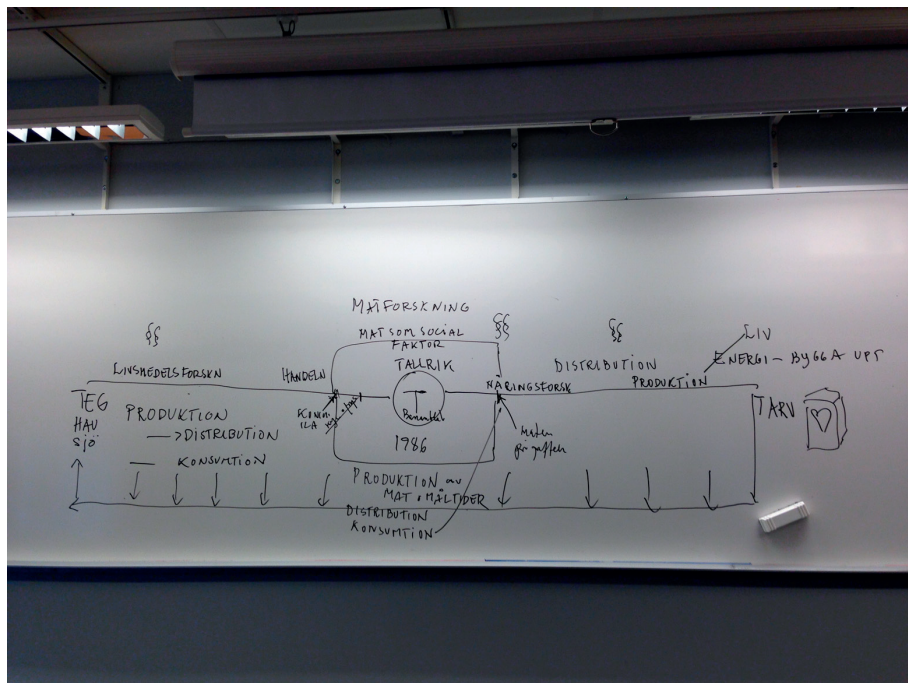 MATFORSKNING
MAT SOM SOCIAL
FAKTOR
§§
§§
§§
LIV
LIVSMEDELSFORSKN
HANDELN
TALLRIK
NÄRINGSFORSK
DISTRIBUTION
PRODUKTION
ENERGI - BYGGA UPP
TEG
HAV
SJÖ
PRODUKTION
-> DISTRIBUTION
KONSUMTION
1986
Maten
på gaffeln
TARV
PRODUKTION av
MAT o MÅLTIDER
DISTRIBUTION
KONSUMTION